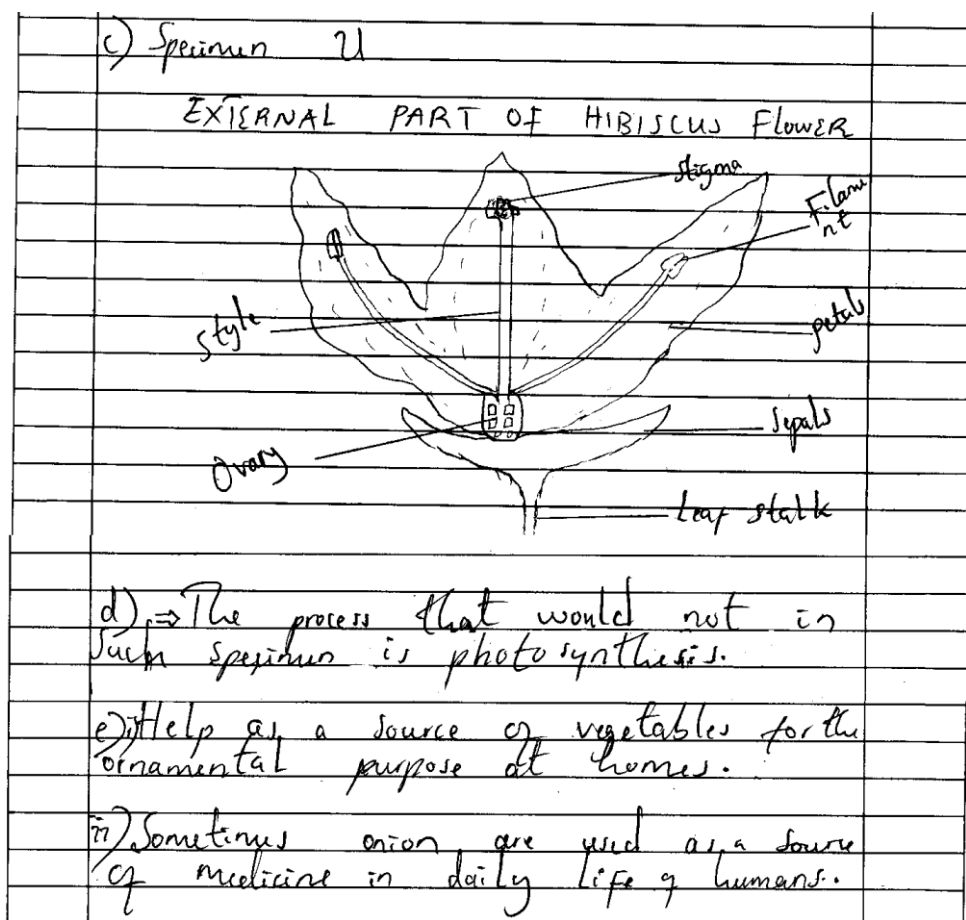 c) Specimen U
EXTERNAL PART OF HIBISCUS FlowER
stigma
Filame
nt
style
petals
sepals
Ovary
Leaf stalk
d) ⇒ The process that would not in
such specimen is photosynthesis.
e) i) Help as a source of vegetables for the
ornamental purpose at homes.
ii) Sometimes onion are used as a source
of medicine in daily life of humans.